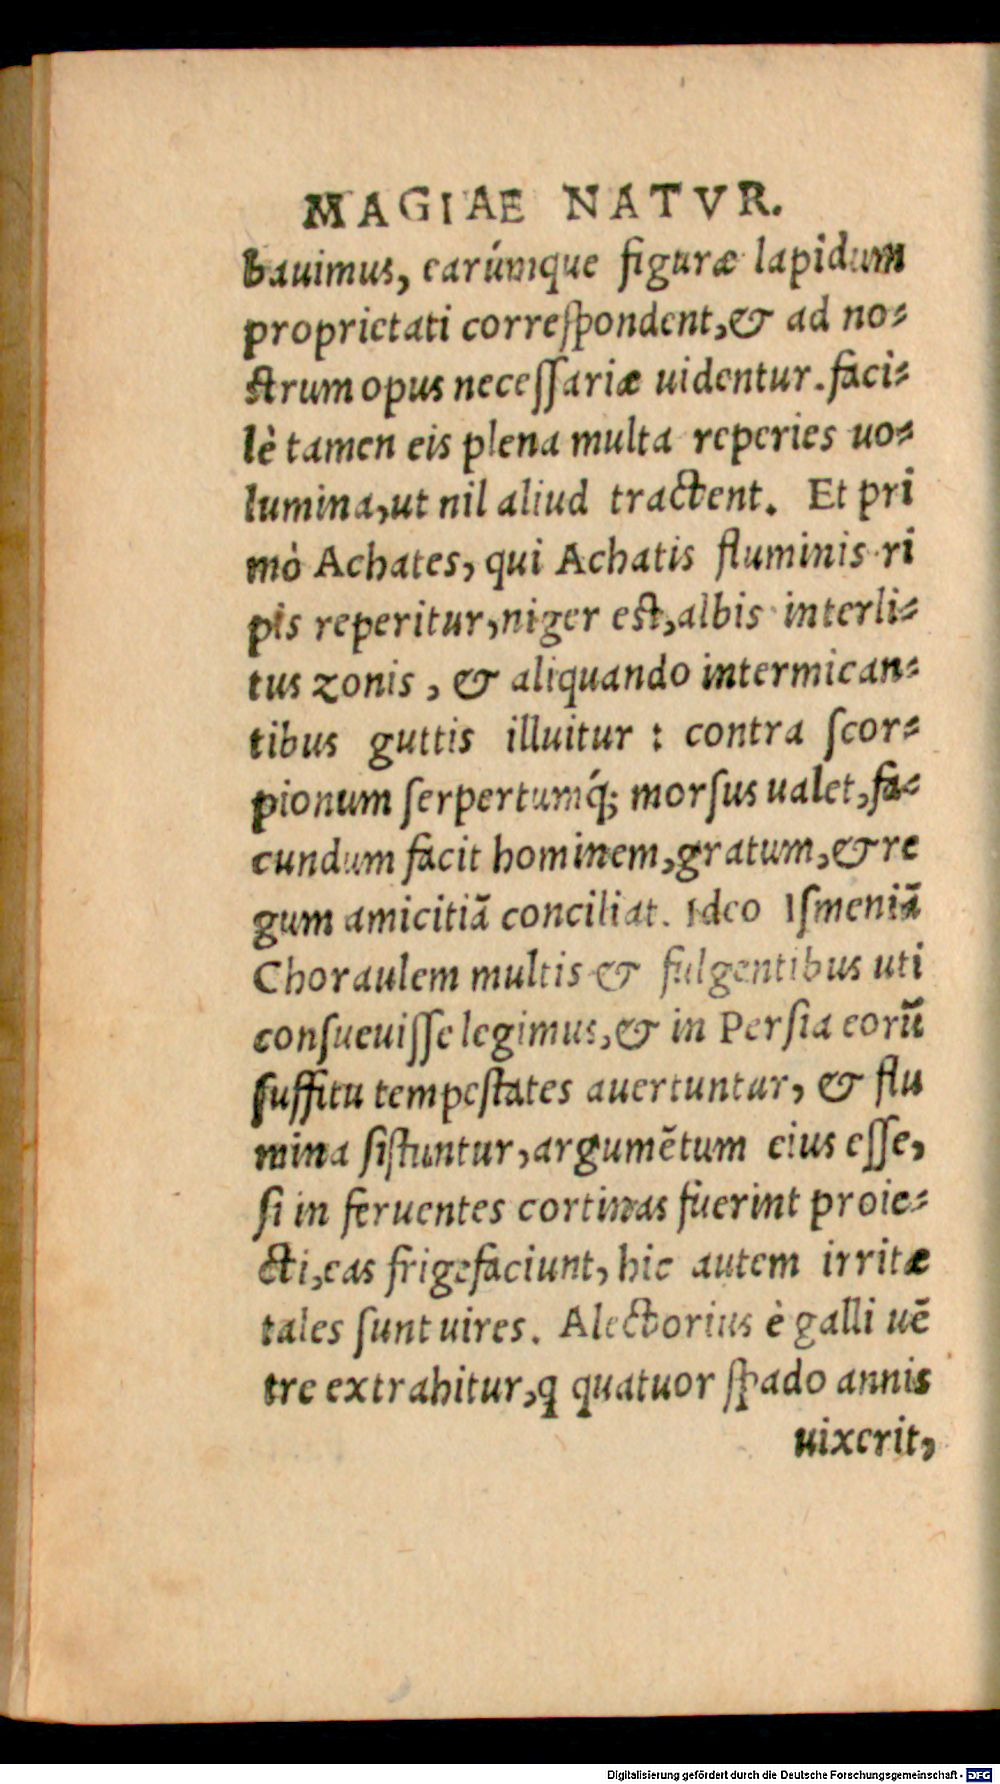 MAGIAE NATVR.
bauimus, earúmque figuræ lapidum
proprietati correſpondent,& ad no⸗
ſtrum opus neceſſariæ uidentur. faci⸗
lè tamen eis plena multa reperies uo⸗
lumina,ut nil aliud tractent. Et pri
mò Achates, qui Achatis fluminis ri
pis reperitur,niger eſt,albis interli⸗
tus zonis , & aliquando intermican⸗
tibus guttis illuitur : contra ſcor⸗
pionum ſerpertumq́; morſus ualet,fa⸗
cundum facit hominem,gratum,& re
gum amicitiã conciliat. Ideo Iſmeniã
Choraulem multis & fulgentibus uti
conſueuiſſe legimus,& in Perſia eorũ
ſuffitu tempeſtates auertuntur, & flu
mina ſiſtuntur,argumẽtum eius eſſe,
ſi in feruentes cortinas fuerint proie⸗
cti,eas frigefaciunt, hic autem irritæ
tales ſunt uires. Alectorius è galli uẽ
tre extrahitur,q quatuor ſpado annis
uixerit,
Digitalisierung gefördert durch die Deutsche Forschungsgemeinschaft - DFG